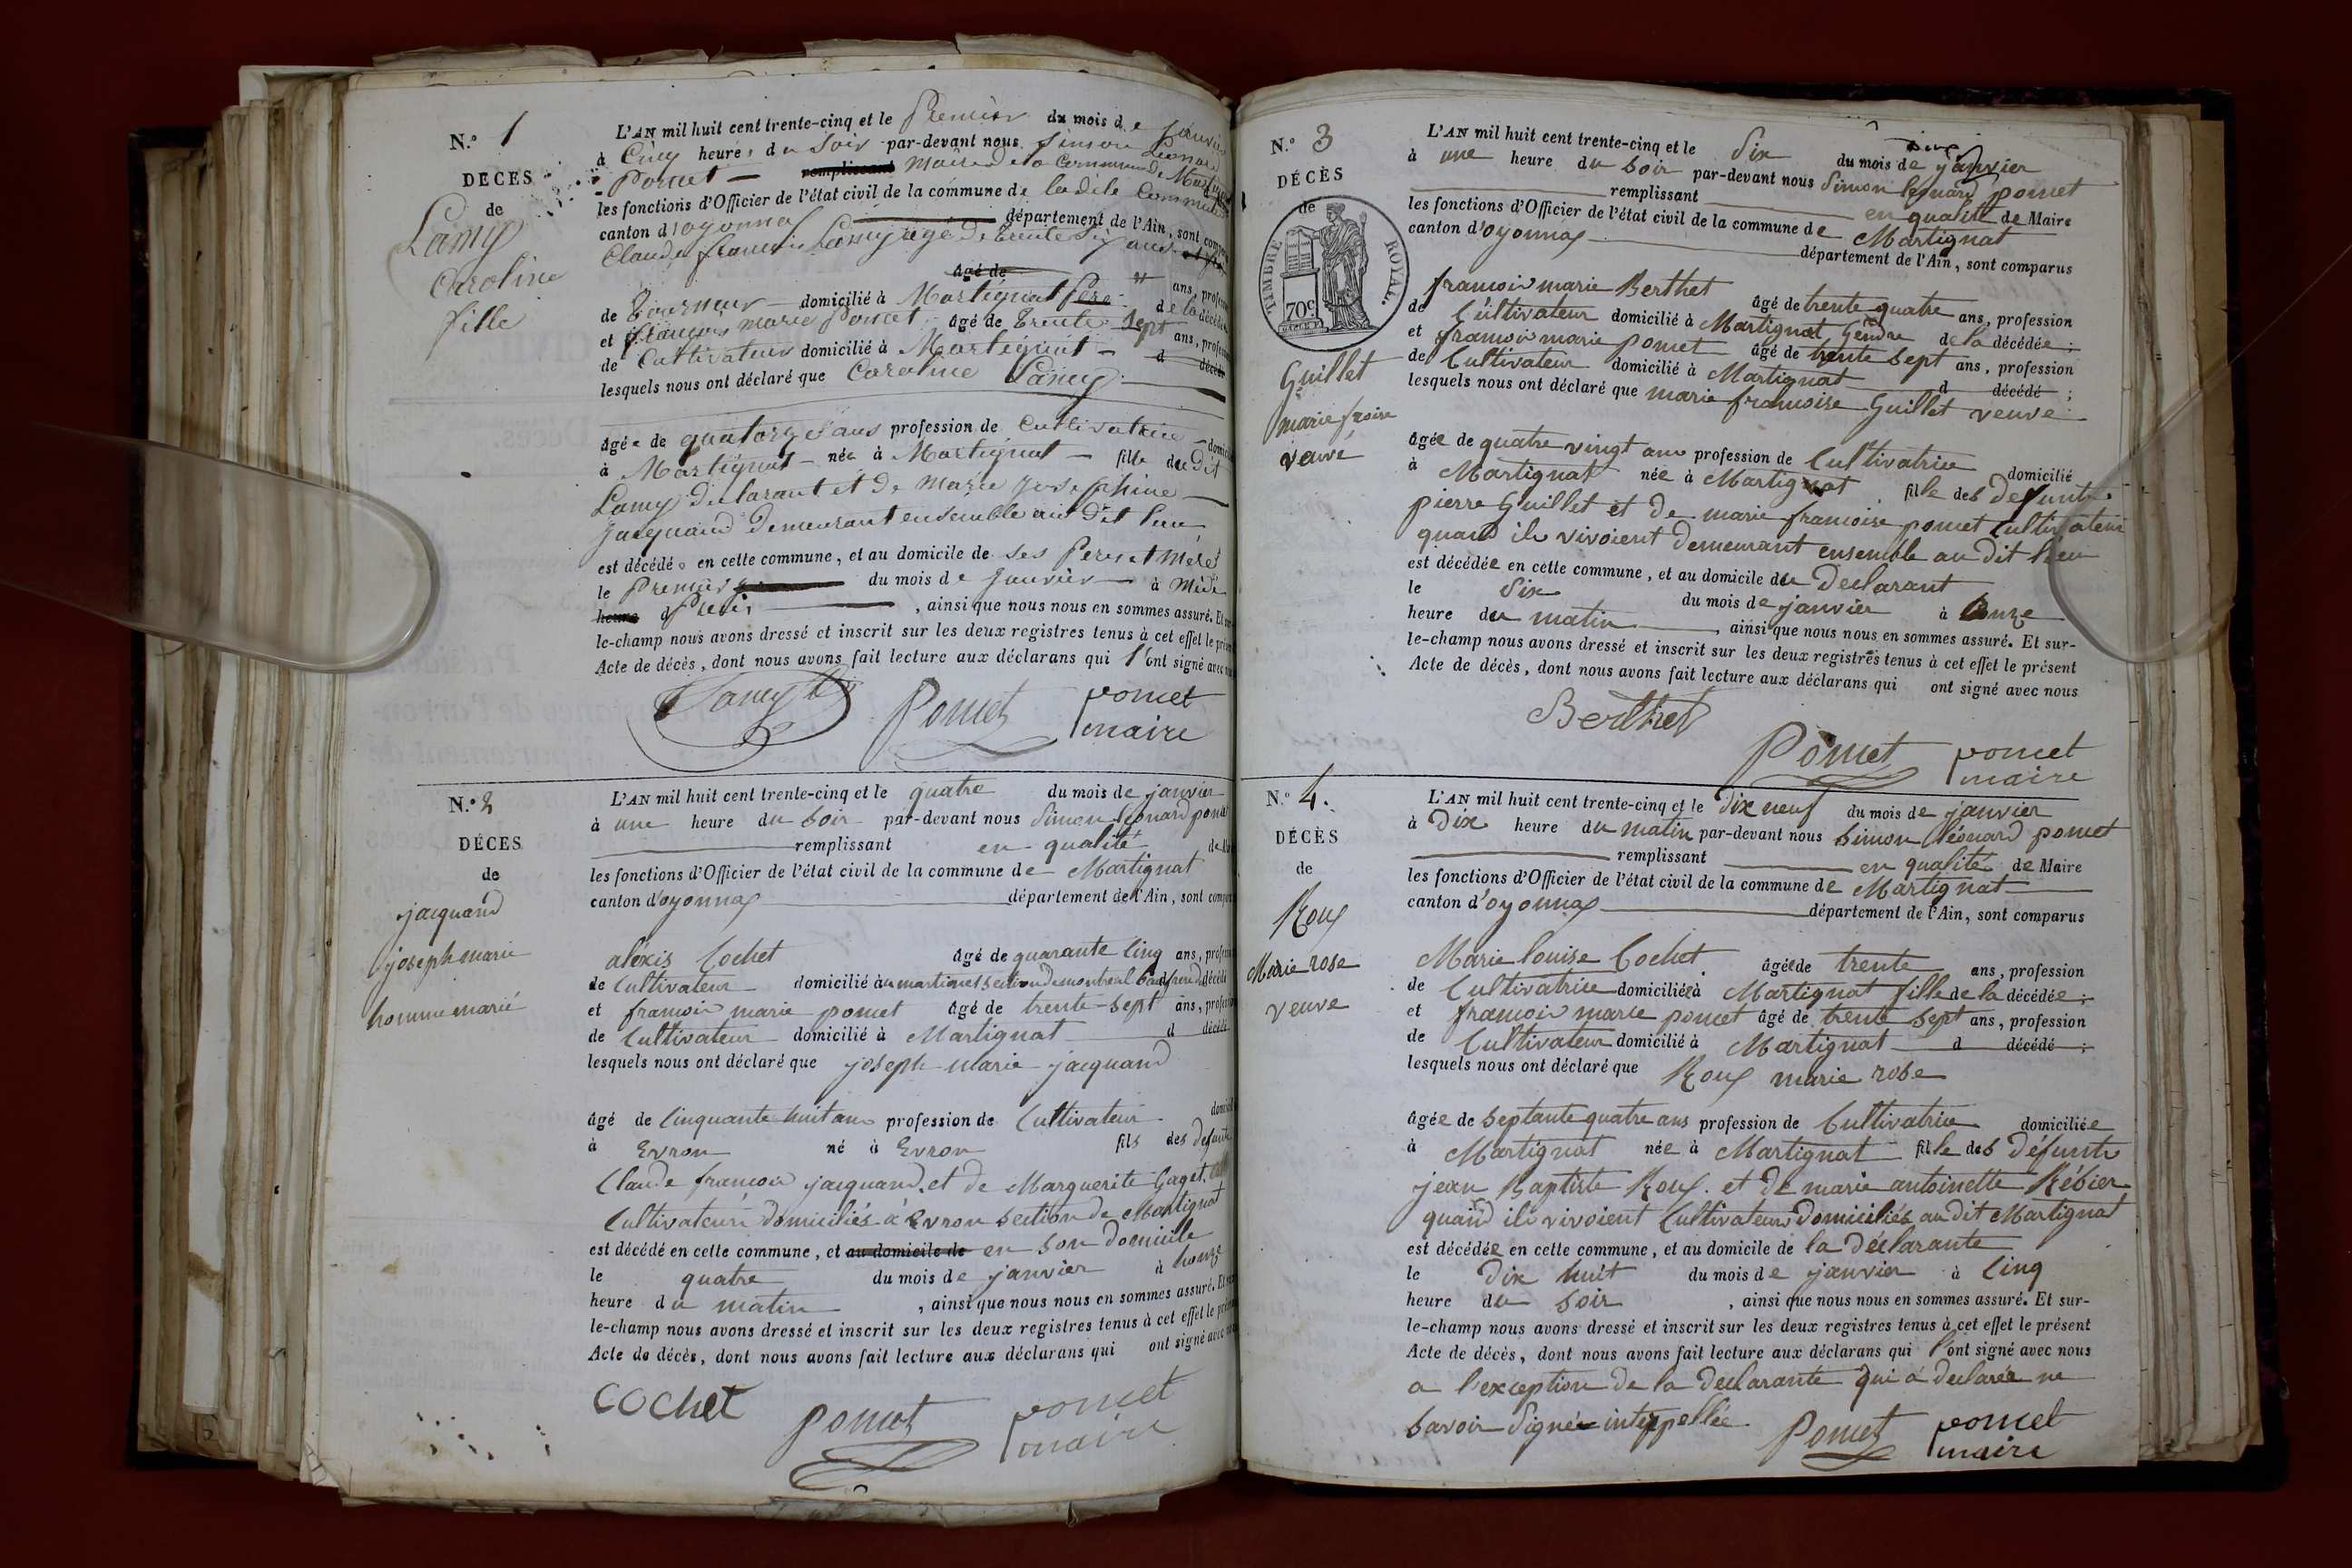 N.° 1
DÉCES
de
Lamy
Caroline
fille
L'AN mil huit cent trente-cinq et le Premier du mois de Janvier
à Cinq heures du Soir par-devant nous Simon Léonard
Pomet — remplissant maire de la Commune de Martignat
les fonctions d'Officier de l'état civil de la commune de la dite Commune
canton d'oyonnax département de l'Ain, sont comparus
Claude françois Lamy agé de trente six ans
âgé de ans, profession
de Tourneur domicilié à Martignat Père de la décédée
et françois marie Pomet âgé de Trente Sept ans, profession
de Cultivateur domicilié à Martignat d décédé
lesquels nous ont déclaré que Caroline Lamy
âgée de quatorze ans profession de Cultivatrice domicilié
à Martignat née à Martignat fille du Dit
Lamy Déclarant et De Marie Josephine
Jacquand Demeurant ensemble au Dit lieu
est décédée en cette commune, et au domicile de ses Peres et Mere
le Premier du mois de Janvier à Midi
heure d Précis , ainsi que nous nous en sommes assuré. Et sur-
le-champ nous avons dressé et inscrit sur les deux registres tenus à cet effet le présent
Acte de décès, dont nous avons fait lecture aux déclarans qui l'ont signé avec nous
Lamy Pomet pomet
maire
N.° 2
DÉCES
de
jacquand
joseph marie
homme marié
L'AN mil huit cent trente-cinq et le quatre du mois de janvier
à une heure du Soir par-devant nous Simon Léonard pomet
remplissant en qualité de Maire
les fonctions d'Officier de l'état civil de la commune de Martignat
canton d'oyonnax département de l'Ain, sont comparus
aléxis Cochet âgé de quarante Cinq ans, profession
de Cultivateur domicilié au martinet section de montreal Beaufrere d décédé
et francois marie pomet âgé de trente-sept ans, profession
de Cultivateur domicilié à Martignat d décédé
lesquels nous ont déclaré que joseph-marie jacquand
âgé de Cinquante huit ans profession de Cultivateur domicilié
à Evron né à Evron fils des defunts
Claude francois jacquand, et de Marguerite Gaget,
Cultivateurs domiciliés à Evron section de Martignat
est décédé en cette commune, et au domicile de en son domicile
le quatre du mois de janvier à honze
heure du matin , ainsi que nous nous en sommes assuré. Et sur-
le-champ nous avons dressé et inscrit sur les deux registres tenus à cet effet le présent
Acte de décès, dont nous avons fait lecture aux déclarans qui ont signé avec nous
COchet Pomet pomet
maire
N.° 3
DÉCÈS
de
TIMBRE ROYAL.
70c
Guillet
marie fçoise
veuve
L'AN mil huit cent trente-cinq et le Six du mois de janvier
à une heure du soir par-devant nous Simon leonard pomet
remplissant en qualité de Maire
les fonctions d'Officier de l'état civil de la commune de Martignat
canton d'oyonnax département de l'Ain, sont comparus
francois marie Berthet âgé de trente quatre ans, profession
de Cultivateur domicilié à Martignat Gendre de la décédée ;
et francois marie pomet âgé de trente sept ans, profession
de Cultivateur domicilié à Martignat d décédé ;
lesquels nous ont déclaré que marie francoise Guillet veuve
âgée de quatre vingt ans profession de Cultivatrice domicilié
à Martignat née à Martignat fille des defunts
pierre Guillet et De marie francoise pomet Cultivateur
quand ils vivoient demeurant ensemble au dit lieu
est décédée en cette commune, et au domicile du Declarant
le Six du mois de janvier à onze
heure du matin , ainsi que nous nous en sommes assuré. Et sur-
le-champ nous avons dressé et inscrit sur les deux registres tenus à cet effet le présent
Acte de décès, dont nous avons fait lecture aux déclarans qui ont signé avec nous
Berthet
Pomet pomet
maire
N.° 4.
DÉCÈS
de
Roux
Marie rose
veuve
L'AN mil huit cent trente-cinq et le dix neuf du mois de janvier
à Dix heure du matin par-devant nous Simon Léonard pomet
remplissant en qualité de Maire
les fonctions d'Officier de l'état civil de la commune de Martignat
canton d'oyonnax département de l'Ain, sont comparus
Marie louise Cochet âgée de trente ans, profession
de Cultivatrice domiciliée à Martignat fille de la décédée ;
et francois marie pomet âgé de trente sept ans, profession
de Cultivateur domicilié à Martignat d décédé ;
lesquels nous ont déclaré que Roux marie rose
âgée de septante quatre ans profession de Cultivatrice domiciliée
à Martignat née à Martignat fille des défunts
jean Baptiste Roux. et de marie antoinette Rébier
quand ils vivoient Cultivateurs domiciliés au dit Martignat
est décédée en cette commune, et au domicile de la Déclarante
le dix huit du mois de janvier à Cinq
heure du soir , ainsi que nous nous en sommes assuré. Et sur-
le-champ nous avons dressé et inscrit sur les deux registres tenus à cet effet le présent
Acte de décès, dont nous avons fait lecture aux déclarans qui l'ont signé avec nous
a l'exception de la declarante qui a declarée ne
savoir signée interpellée. Pomet pomet
maire